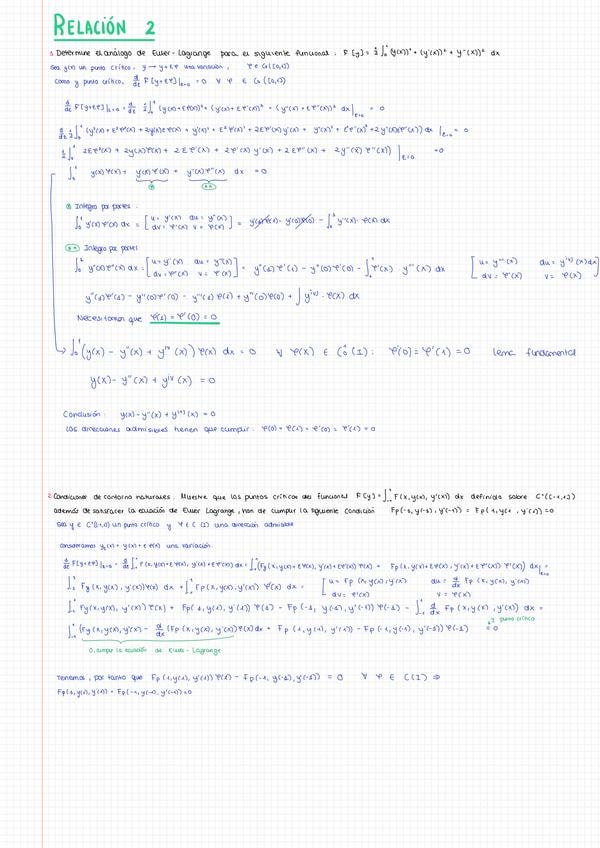 RELACIÓN 2
1. Determine el análogo de Euler-Lagrange para el siguiente funcional: F[y] = 1/2 ∫₀¹ (y(x))² + (y'(x))² + y''(x))² dx
Sea y(x) un punto crítico, y → y+εφ una variación, φ ∈ C₀([0,1])
Como y punto crítico, d/dε F[y+εφ]|ε=0 = 0 ∀ φ ∈ C₀([0,1])
d/dε F[y+εφ]|ε=0 = d/dε 1/2 ∫₀¹ (y(x)+εφ(x))² + (y'(x)+εφ'(x))² + (y''(x)+εφ''(x))² dx|ε=0 = 0
d/dε 1/2 ∫₀¹ (y²(x) + ε²φ²(x) + 2y(x)εφ(x) + y'(x)² + ε²φ'(x)² + 2εφ'(x)y'(x) + y''(x)² + ε²φ''(x)² + 2y''(x)εφ''(x)) dx |ε=0 = 0
1/2 ∫₀¹ 2εφ²(x) + 2y(x)φ(x) + 2εφ'(x) + 2φ'(x) y'(x) + 2εφ''(x) + 2y''(x)φ''(x) |ε=0 = 0
∫₀¹ y(x)φ(x) + y'(x)φ'(x) + y''(x)φ''(x) dx = 0
(*) (**)
(*) Integro por partes:
∫₀¹ y'(x)φ'(x) dx = [u = y'(x) du = y''(x) dv = φ'(x) v = φ(x)] = y'(1)φ(1) - y'(0)φ(0) - ∫₀¹ y''(x)·φ(x) dx
(**) Integro por partes
∫₀¹ y''(x)φ''(x) dx = [u = y''(x) du = y'''(x) dv = φ''(x) v = φ'(x)] = y''(1)φ'(1) - y''(0)φ'(0) - ∫₀¹ φ'(x) y'''(x) dx [u = y'''(x) du = y^(iv)(x)dx dv = φ'(x) v = φ(x)]
y''(1)φ'(1) - y''(0)φ'(0) - y'''(1)φ(1) + y'''(0)φ(0) + ∫ y^(iv)·φ(x) dx
Necesitamos que φ'(1) = φ'(0) = 0
∫₀¹ (y(x) - y''(x) + y^iv(x)) φ(x) dx = 0 ∀ φ(x) ∈ C₀¹(I): φ'(0) = φ'(1) = 0 lema fundamental
y(x) - y''(x) + y^iv(x) = 0
Conclusión: y(x) - y''(x) + y^(iv)(x) = 0
Las direcciones admisibles tienen que cumplir: φ(0) = φ(1) = φ'(0) = φ'(1) = 0
2. Condiciones de contorno naturales. Muestre que los puntos críticos del funcional F[y] = ∫₋₁¹ F(x, y(x), y'(x)) dx definido sobre C¹([-1,1])
además de satisfacer la ecuación de Euler Lagrange, han de cumplir la siguiente condición Fp(-1, y(-1), y'(-1)) = Fp(1, y(1), y'(1)) = 0
Sea y ∈ C¹(-1,1) un punto crítico y φ ∈ C(I) una dirección admisible
Consideramos yε(x) = y(x) + εφ(x) una variación.
d/dε F[y+εφ]|ε=0 = d/dε ∫₋₁¹ F(x, y(x)+εφ(x), y'(x)+εφ'(x)) dx = ∫₋₁¹ (Fy(x, y(x)+εφ(x), y'(x)+εφ'(x)) φ(x) + Fp(x, y(x)+εφ(x), y'(x)+εφ'(x)) φ'(x)) dx|ε=0 =
∫₋₁¹ Fy(x, y(x), y'(x))φ(x) dx + ∫₋₁¹ Fp(x, y(x), y'(x)) φ'(x) dx = [u = Fp(x, y(x), y'(x)) du = d/dx Fp(x, y(x), y'(x)) dv = φ'(x) v = φ(x)]
∫₋₁¹ Fy(x, y(x), y'(x)) φ(x) + Fp(1, y(1), y'(1)) φ(1) - Fp(-1, y(-1), y'(-1)) φ(-1) - ∫₋₁¹ d/dx Fp(x, y(x), y'(x)) dx =
∫₋₁¹ (Fy(x, y(x), y'(x) - d/dx (Fp(x, y(x), y'(x))φ(x) dx + Fp(1, y(1), y'(1)) - Fp(-1, y(-1), y'(-1)) φ(-1) = 0
y punto crítico
0, cumple la ecuación de Euler-Lagrange
Tenemos, por tanto que Fp(1, y(1), y'(1)) φ(1) - Fp(-1, y(-1), y'(-1)) = 0 ∀ φ ∈ C(I) ⇒
Fp(1, y(1), y'(1)) = Fp(-1, y(-1), y'(-1)) = 0